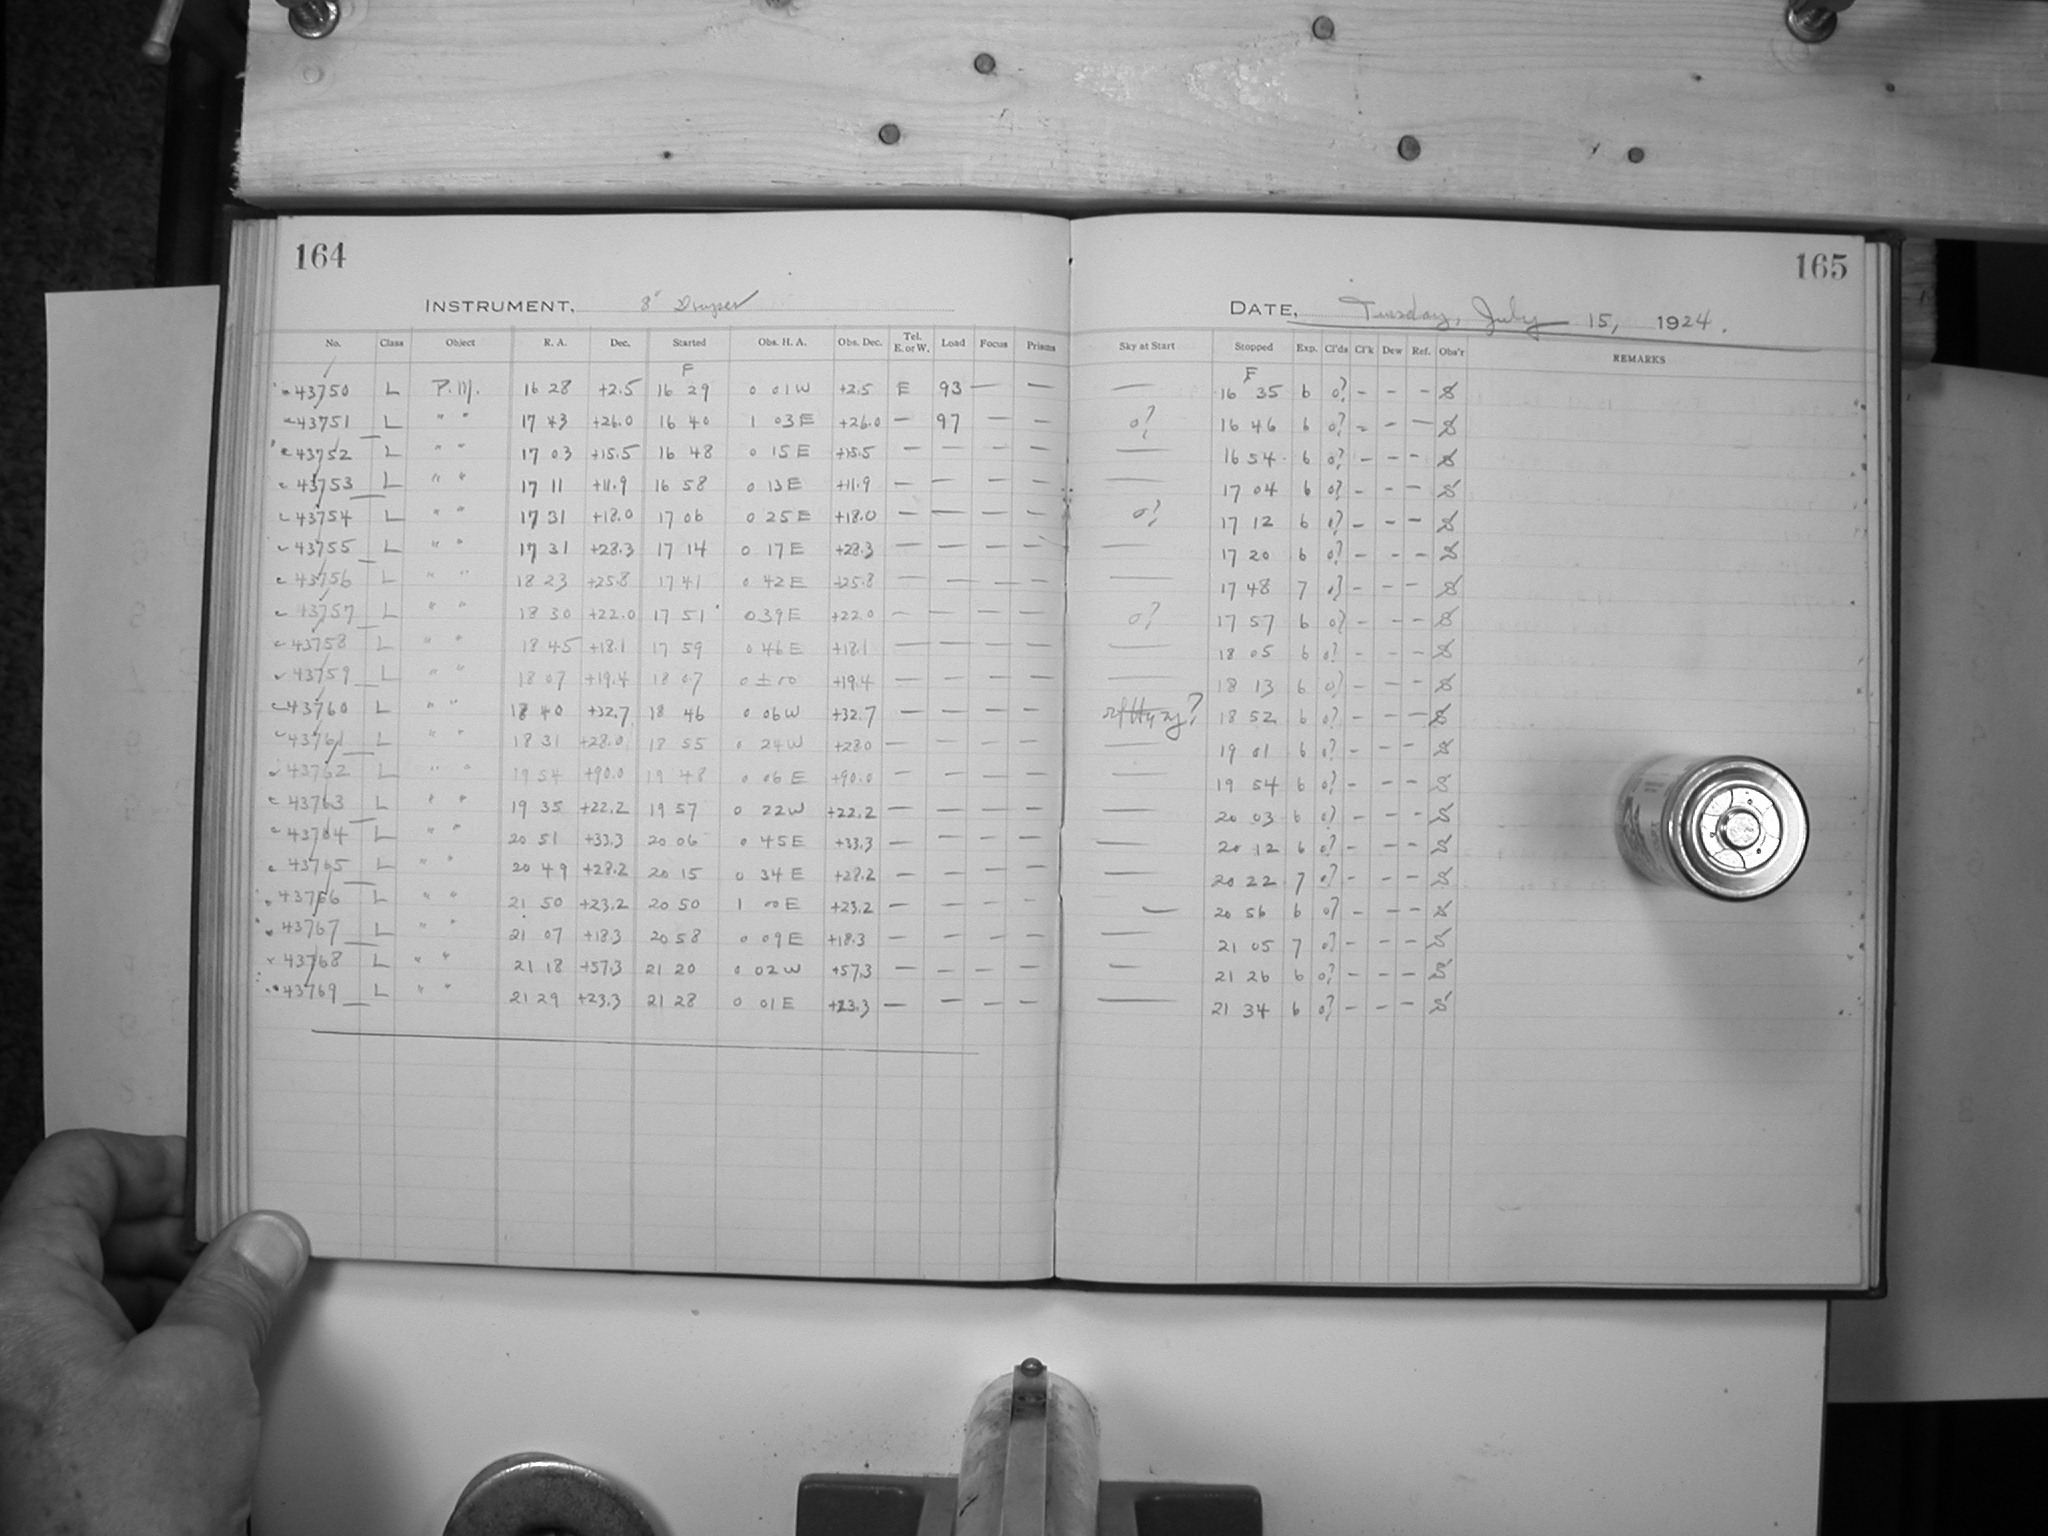 164
165
INSTRUMENT, 8" Draper
DATE, Tuesday, July 15, 1924.
No. Class Object R. A. Dec. Started Obs. H. A. Obs. Dec. Tel. E. or W. Load Focus Prisms Sky at Start Stopped Exp. Cl'ds Cl'k Dew Ref. Obs'r REMARKS
F F
43750 L P.M. 16 28 +2.5 16 29 0 01 W +2.5 E 93 — — — 16 35 6 0? - - -
43751 L " " 17 43 +26.0 16 40 1 03 E +26.0 — 97 — — 0? 16 46 6 0? - - -
43752 L " " 17 03 +15.5 16 48 0 15 E +15.5 — — — — — 16 54 6 0? - - -
43753 L " " 17 11 +11.9 16 58 0 13 E +11.9 — — — — — 17 04 6 0? - - -
43754 L " " 17 31 +18.0 17 06 0 25 E +18.0 — — — — 0? 17 12 6 0? - - -
43755 L " " 17 31 +28.3 17 14 0 17 E +28.3 — — — — — 17 20 6 0? - - -
43756 L " " 18 23 +25.8 17 41 0 42 E +25.8 — — — — — 17 48 7 0? - - -
43757 L " " 18 30 +22.0 17 51 0 39 E +22.0 — — — — 0? 17 57 6 0? - - -
43758 L " " 18 45 +18.1 17 59 0 46 E +18.1 — — — — — 18 05 6 0? - - -
43759 L " " 18 07 +19.4 18 07 0 ± 00 +19.4 — — — — — 18 13 6 0? - - -
43760 L " " 18 40 +32.7 18 46 0 06 W +32.7 — — — — 18 52 6 0? - - -
43761 L " " 18 31 +28.0 18 55 0 24 W +28.0 — — — — — 19 01 6 0? - - -
43762 L " " 19 54 +90.0 19 48 0 06 E +90.0 — — — — — 19 54 6 0? - - -
43763 L " " 19 35 +22.2 19 57 0 22 W +22.2 — — — — — 20 03 6 0? - - -
43764 L " " 20 51 +33.3 20 06 0 45 E +33.3 — — — — — 20 12 6 0? - - -
43765 L " " 20 49 +28.2 20 15 0 34 E +28.2 — — — — — 20 22 7 0? - - -
43766 L " " 21 50 +23.2 20 50 1 00 E +23.2 — — — — — 20 56 6 0? - - -
43767 L " " 21 07 +18.3 20 58 0 09 E +18.3 — — — — — 21 05 7 0? - - -
43768 L " " 21 18 +57.3 21 20 0 02 W +57.3 — — — — — 21 26 6 0? - - -
43769 L " " 21 29 +23.3 21 28 0 01 E +23.3 — — — — — 21 34 6 0? - - -